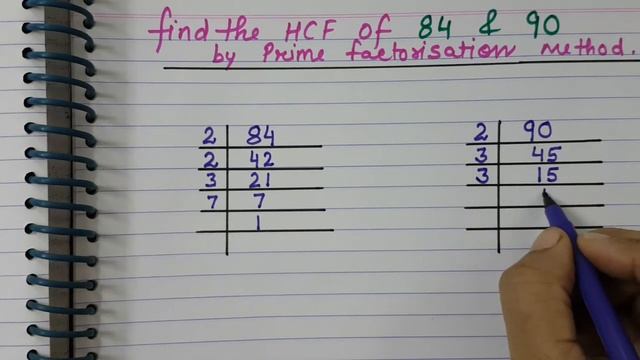 find the HCF of 84 & 90
by Prime factorisation method.
2 84
2 42
3 21
7 7
1
2 90
3 45
3 15